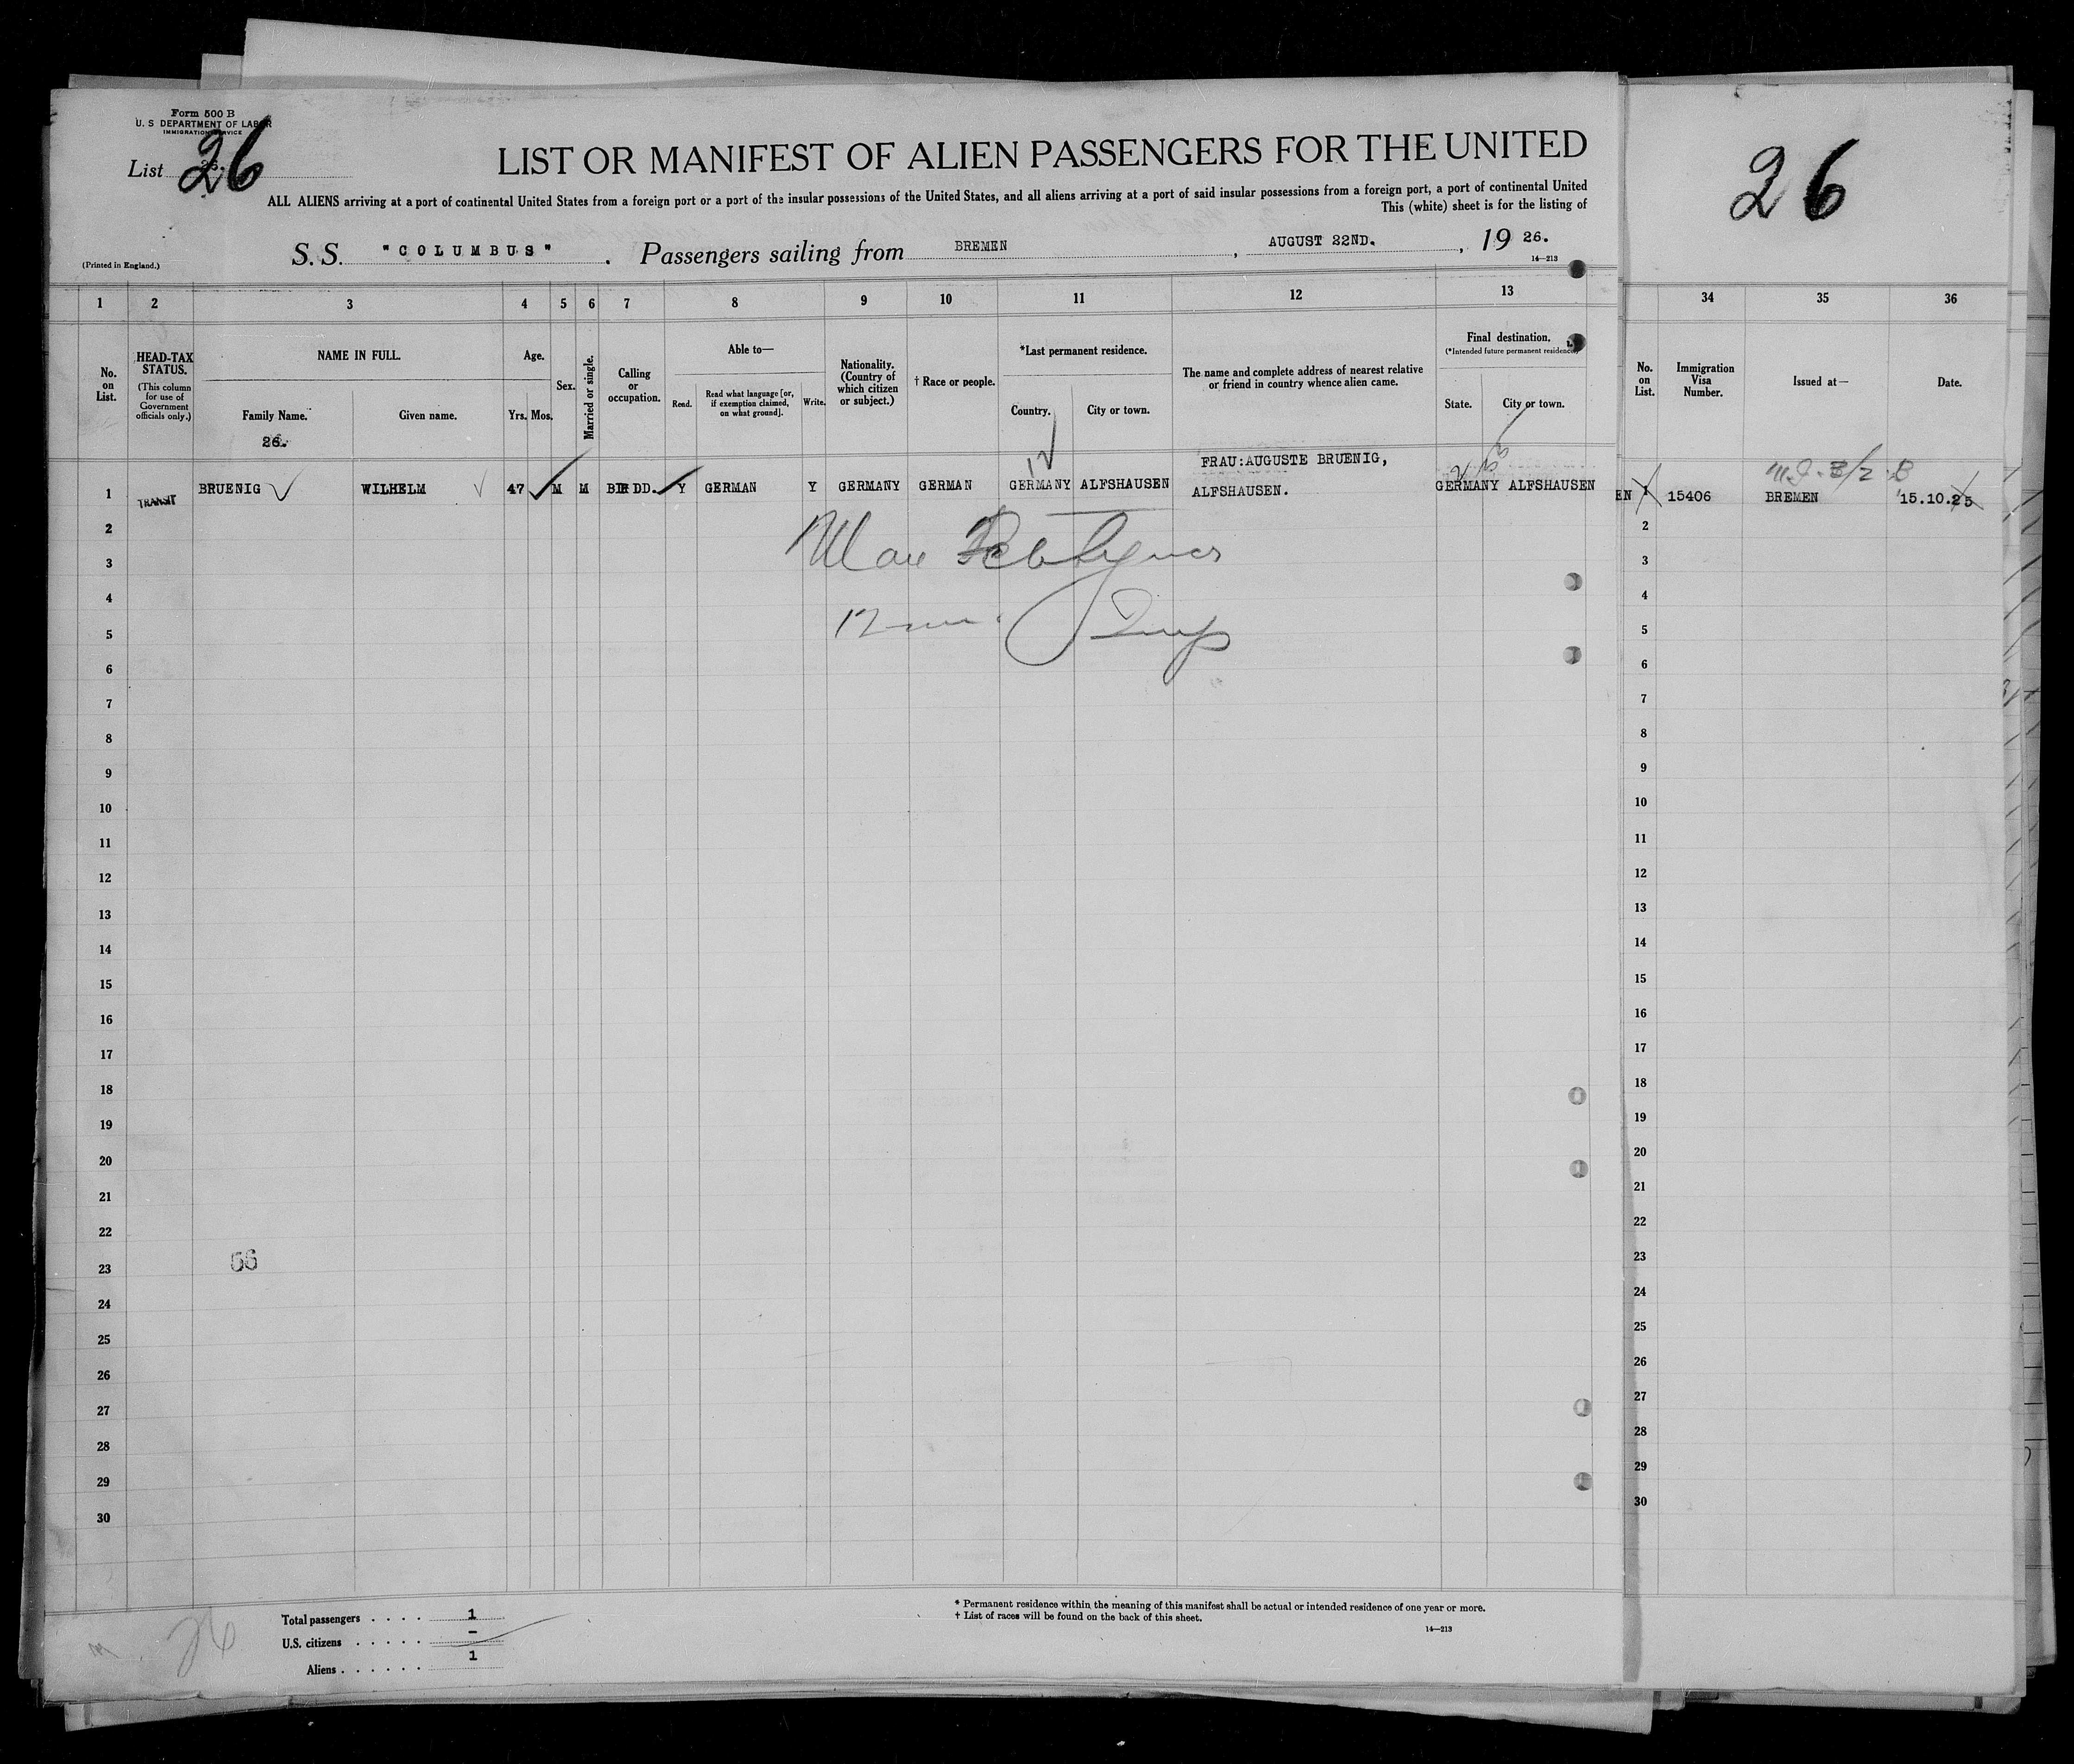 Form 500 B
U. S DEPARTMENT OF LABOR
IMMIGRATION SERVICE
List 26
26
LIST OR MANIFEST OF ALIEN PASSENGERS FOR THE UNITED
ALL ALIENS arriving at a port of continental United States from a foreign port or a port of the insular possessions of the United States, and all aliens arriving at a port of said insular possessions from a foreign port, a port of continental United
This (white) sheet is for the listing of
S. S. "COLUMBUS". Passengers sailing from BREMEN, AUGUST 22ND., 19 26.
(Printed in England.)
14—213
1 2 3 4 5 6 7 8 9 10 11 12 13 34 35 36
No. on List.
HEAD-TAX STATUS.
(This column for use of Government officials only.)
NAME IN FULL.
Family Name.
Given name.
26.
Age.
Yrs. Mos.
Sex.
Married or single.
Calling or occupation.
Able to—
Read.
Read what language [or, if exemption claimed, on what ground].
Write.
Nationality. (Country of which citizen or subject.)
† Race or people.
*Last permanent residence.
Country.
City or town.
The name and complete address of nearest relative or friend in country whence alien came.
Final destination.
(*Intended future permanent residence.)
State.
City or town.
No. on List.
Immigration Visa Number.
Issued at—
Date.
FRAU:AUGUSTE BRUENIG,
1 TRANSIT BRUENIG WILHELM 47 M M Y GERMAN Y GERMANY GERMAN GERMANY ALFSHAUSEN ALFSHAUSEN. GERMANY ALFSHAUSEN EN 1 15406 BREMEN 15.10.25
2 2
3 3
4 4
5 5
6 6
7 7
8 8
9 9
10 10
11 11
12 12
13 13
14 14
15 15
16 16
17 17
18 18
19 19
20 20
21 21
22 22
66
23 23
24 24
25 25
26 26
27 27
28 28
29 29
30 30
Total passengers . . . . 1
U.S. citizens . . . . . –
Aliens . . . . . . 1
26
* Permanent residence within the meaning of this manifest shall be actual or intended residence of one year or more.
† List of races will be found on the back of this sheet.
14—213